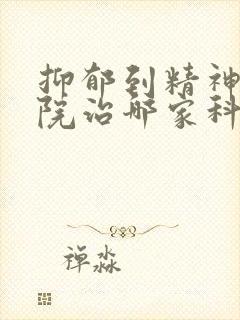 抑郁到精神
院治哪家科
禅淼